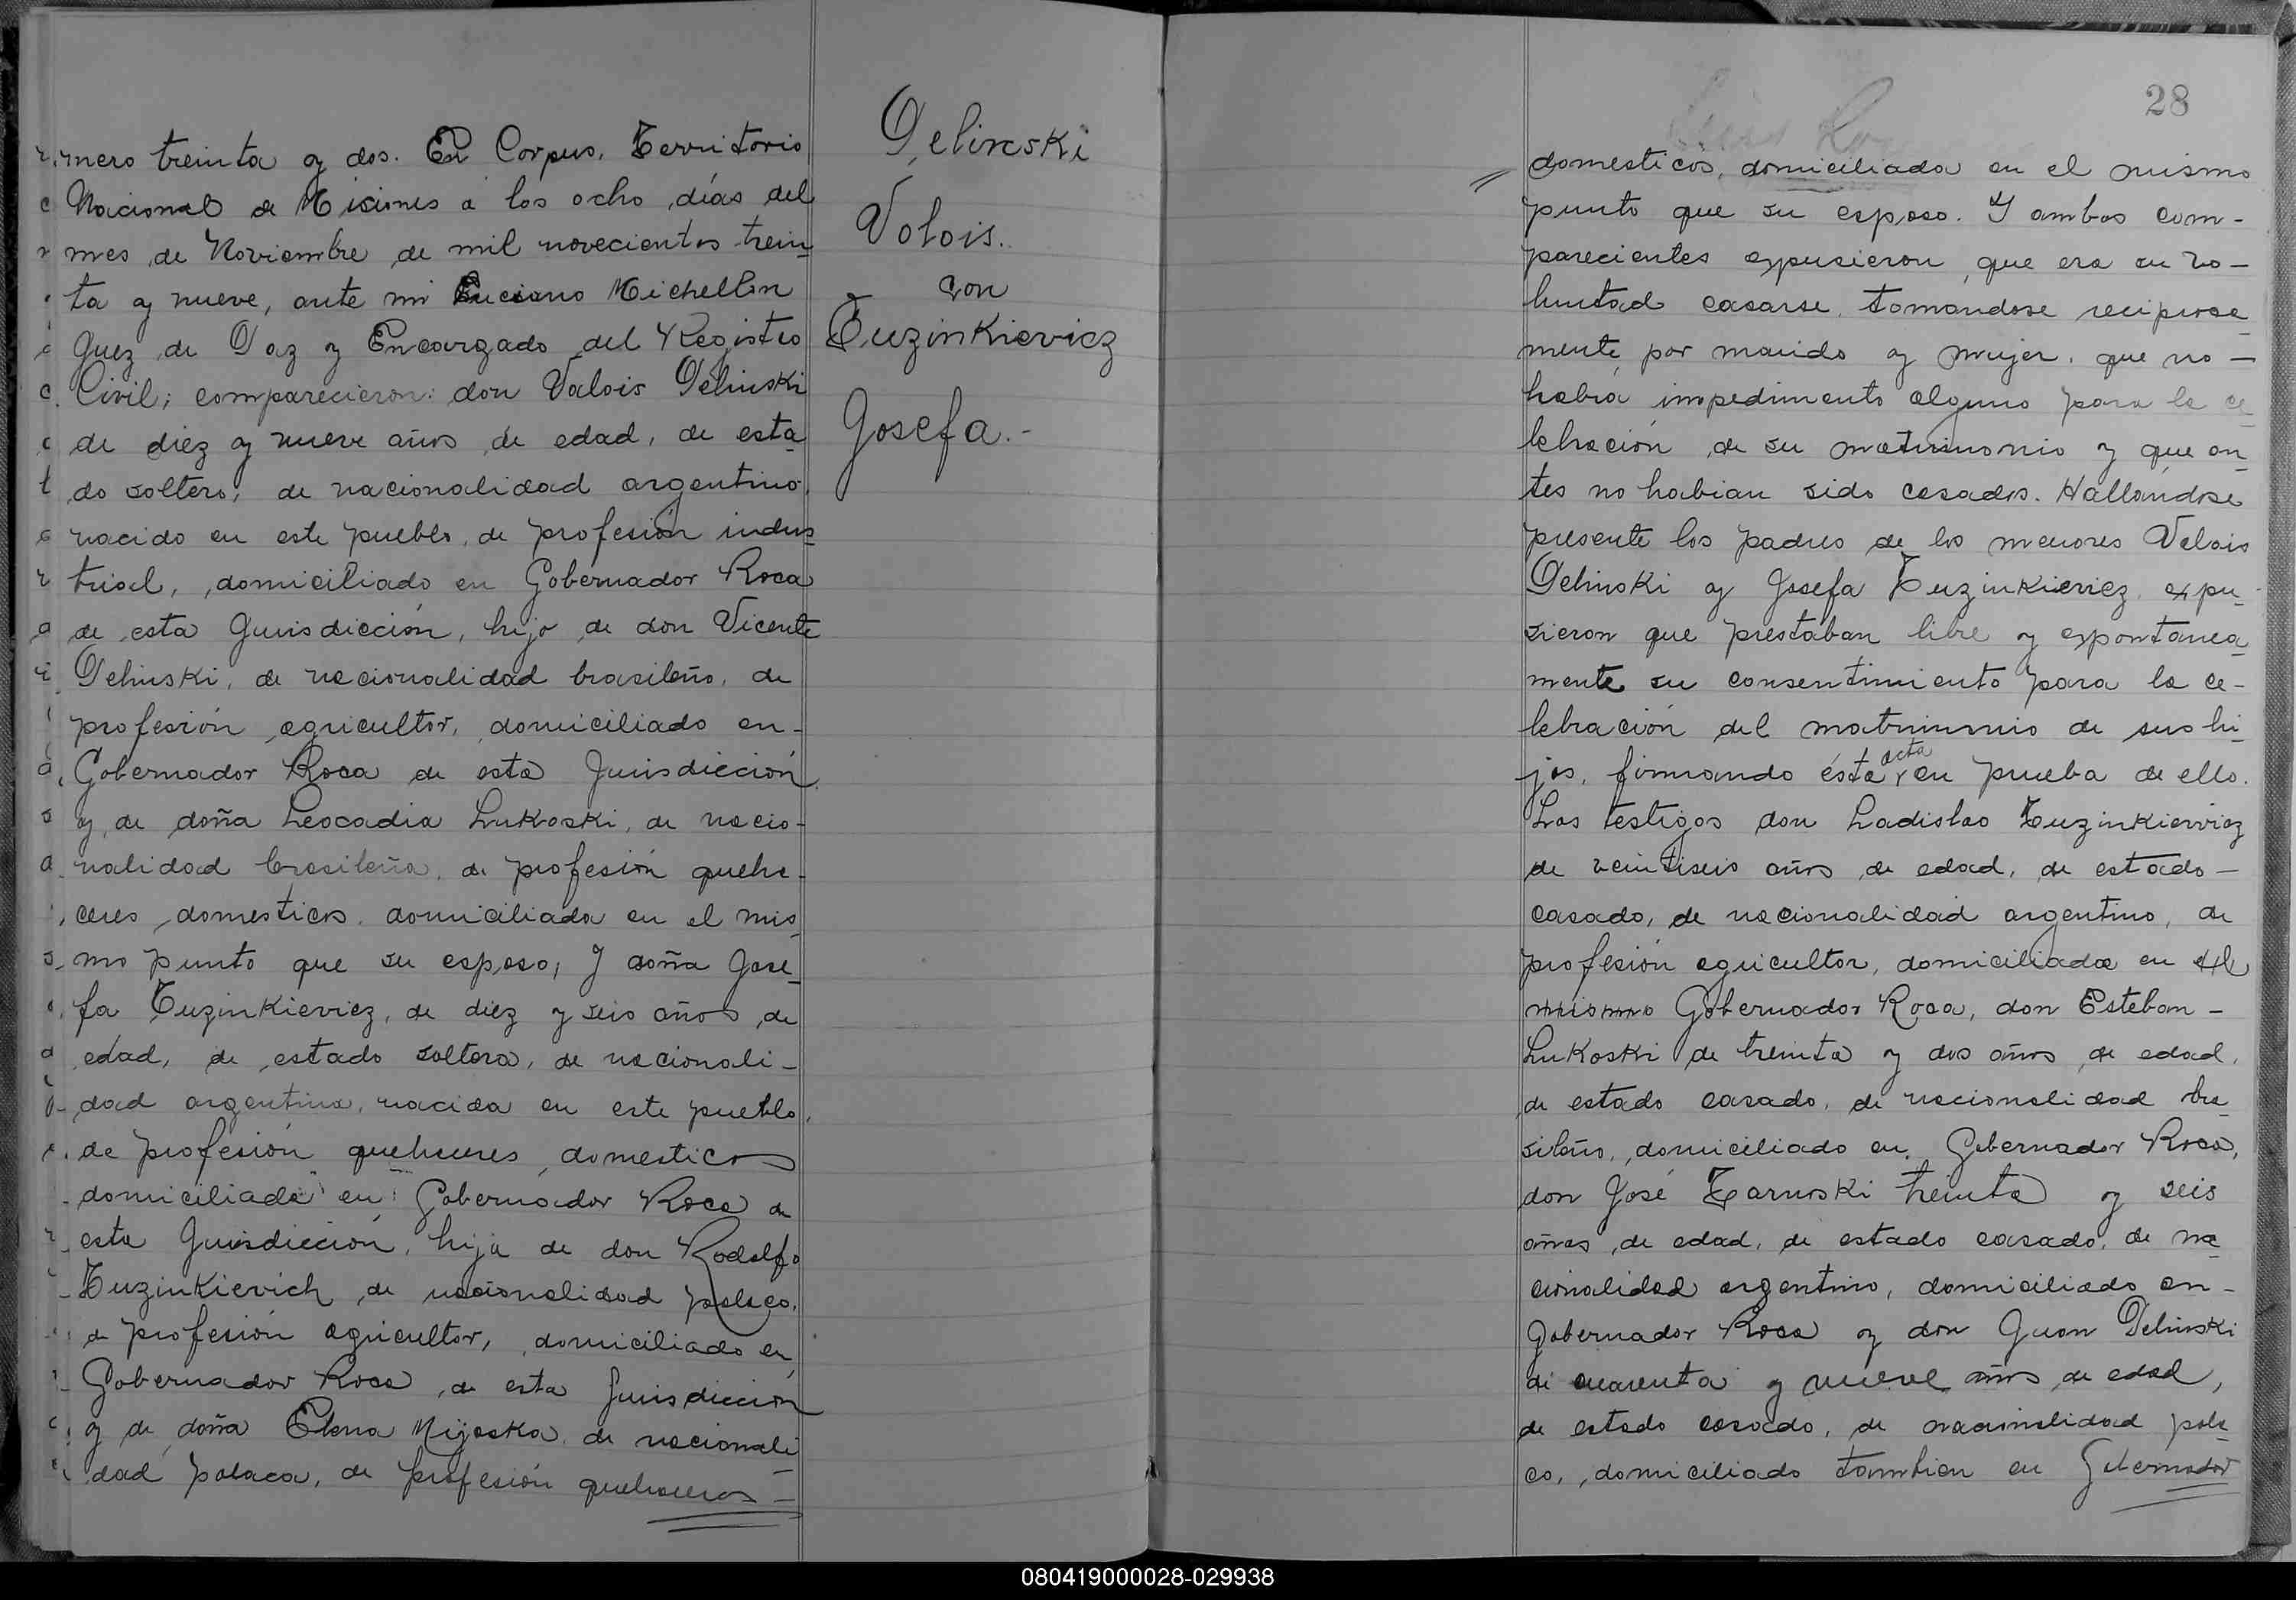 mero treinta y dos. En Corpus, Territorio
Nacional de Misiones á los ocho días del
mes de Noviembre de mil novecientos trein-
ta y nueve, ante mi Luciano Michellon
Juez de Paz y Encargado del Registro
Civil; comparecieron: don Valois Delinski
de diez y nueve años de edad, de esta-
do soltero, de nacionalidad argentino,
nacido en este pueblo, de profesión indus-
trial, domiciliado en Gobernador Roca
de esta Jurisdicción, hijo de don Vicente
Delinski, de nacionalidad brasileño, de
profesión agricultor, domiciliado en-
Gobernador Roca de esta Jurisdicción,
y de doña Leocadia Lukoski, de nacio-
nalidad brasileña, de profesión queha-
ceres domesticos, domiciliada en el mis-
mo punto que su esposo; Y doña Jose-
fa Tuzinkieviez, de diez y seis años de
edad, de estado soltera, de nacionali-
dad argentina, nacida en este pueblo,
de profesión quehaceres domesticos
domiciliada en Gobernador Roca de
esta Jurisdicción, hija de don Rodolfo
Tuzinkievich de nacionalidad polaco,
de profesión agricultor, domiciliado en
Gobernador Roca, de esta Jurisdicción
y de doña Elena Mijoska, de nacionali-
dad polaca, de profesión quehaceres-
Delinski
Valois.
con
Tuzinkieviez
Josefa.-
28
domesticos, domiciliada en el mismo
punto que su esposo. Y ambos com-
parecientes expusieron, que era su vo-
luntad casarse, tomandose reciproca-
mente, por marido y mujer, que no-
habia impedimento alguno para la ce-
lebración de su matrimonio y que an-
tes no habian sido casados. Hallándose
presente los padres de los menores Valois
Delinski y Josefa Tuzinkieviez, expu-
sieron que prestaban libre y espontanea-
mente su consentimiento para la ce-
lebración del matrimonio de sus hi-
acta
jos, firmando ésta en prueba de ello.
Los testigos don Ladislao Tuzinkieviez
de veintiseis años de edad, de estado-
casado, de nacionalidad argentino, de
profesión agricultor, domiciliado en el
mismo Gobernador Roca, don Esteban-
Lukoski de treinta y dos años de edad,
de estado casado, de nacionalidad bra-
sileño, domiciliado en Gobernador Roca,
don José Tarnoski treinta y seis
años de edad, de estado casado, de na-
cionalidad argentino, domiciliado en-
Gobernador Roca y don Juan Delinski
de cuarenta y nueve años de edad,
de estado casado, de nacionalidad pola-
co, domiciliado tambien en Gobernador
080419000028-029938